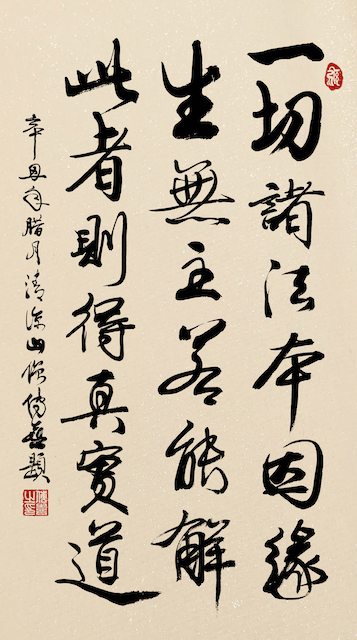 一切諸法本因緣
生無主若能解
此者則得真實道
辛丑年腊月清涼山僧傳喜題